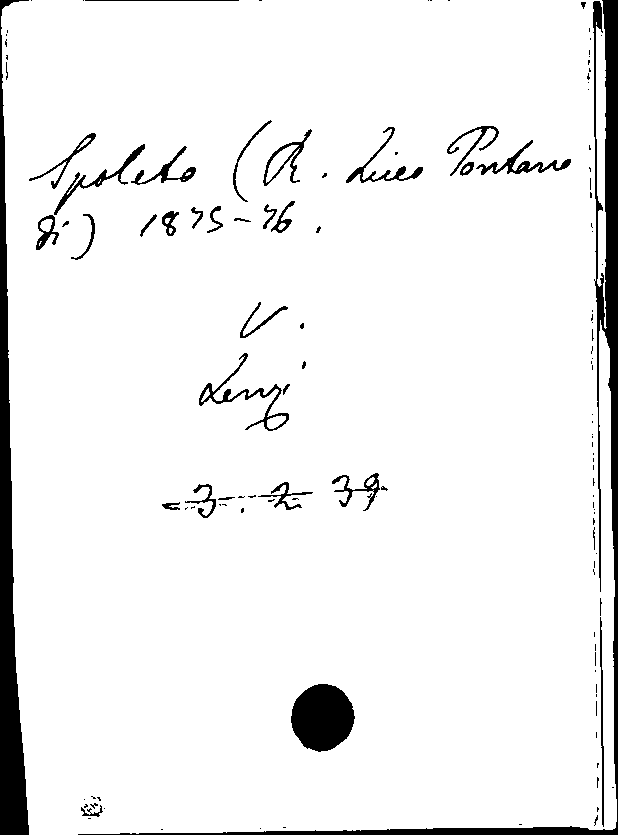 Spoleto (R. Liceo Pontano
di) 1875-76.
V.
Lenzi
3.2 39